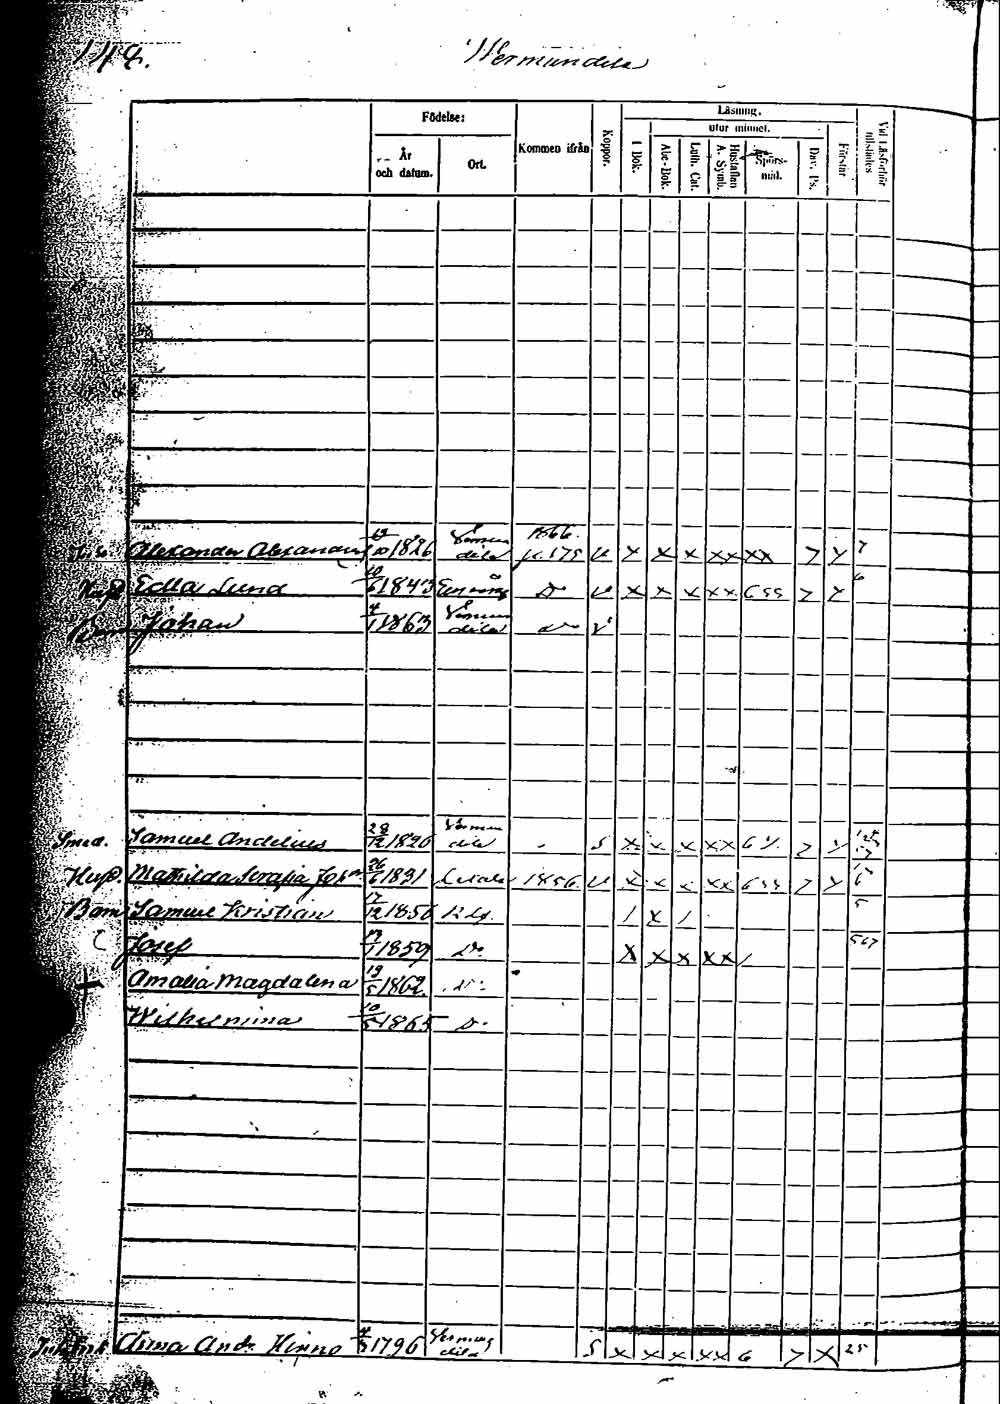 144.
Wermundela
Födelse:
År och datum.
Ort.
Kommen ifrån
Koppor.
Läsning.
I Bok.
utur minnet.
Abc-Bok.
Luth. Cat.
Hustaflan A. Symb.
Spörs-mål.
Dav. Ps.
Förstår
Vid Läsförhör tillstädes
Alexander 10 1826 Vermun dela 1866. v x x x xx xx 7 y 7
Hust Edla Lund 10/6 1843 Do v x x x xx 655 7 y 6
Barn Johan 4/1 1863 Vermun dela Do v
Smed. Samuel Andelius 28/12 1826 Vermun dela - s x x x xx 7 y
Hust. Mathilda Serafia 26/6 1831 Letala 1856. v x x x xx 655 7 y
Barn Samuel Kristian 17/12 1856 1 x 1 5
Josef 13/1 1859 Do x x x xx 567
+ Amalia Magdalena 19/5 1862.
Wilhelmina 10/5 1865 D.
Anna And: 1796 Vermun dela s x x x xx 6 7 x 25